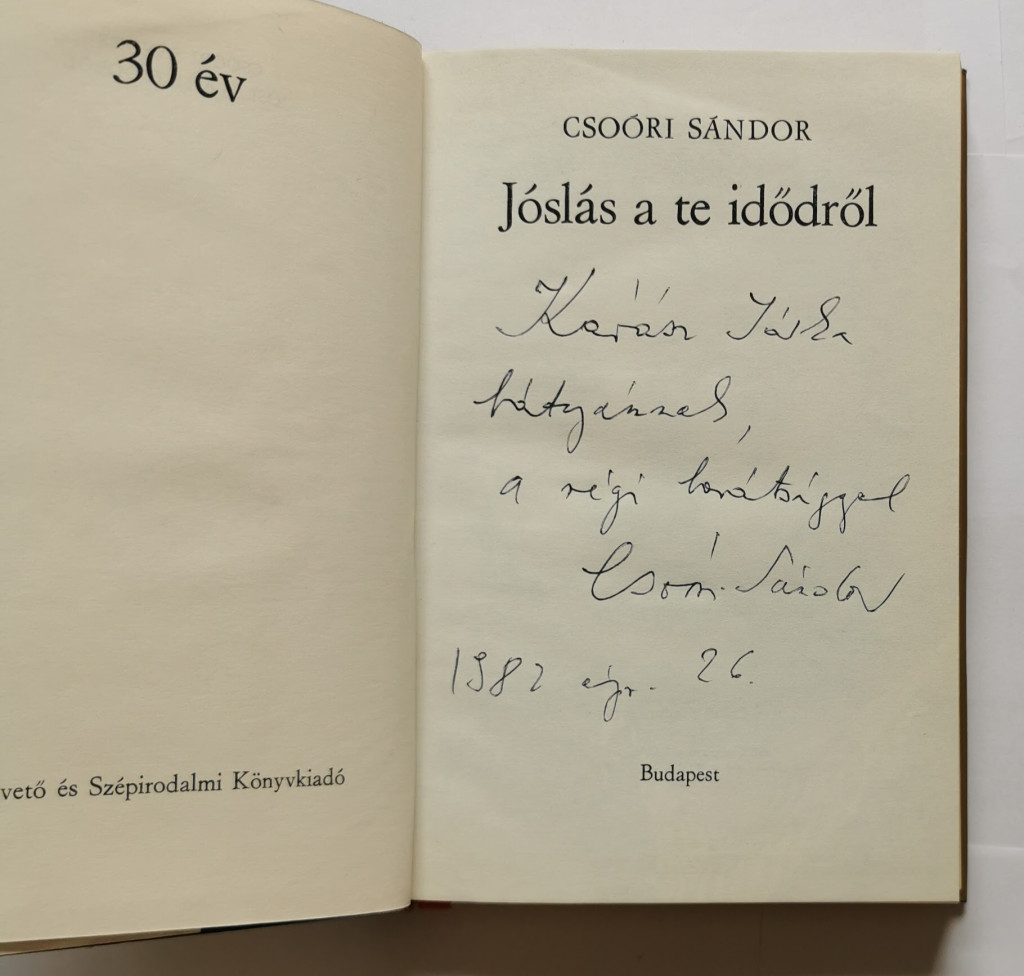 30 év
vető és Szépirodalmi Könyvkiadó
CSOÓRI SÁNDOR
Jóslás a te idődről
Kárász Jóska
bátyámnak,
a régi barátsággal
Csoóri Sándor
1982 ápr. 26.
Budapest